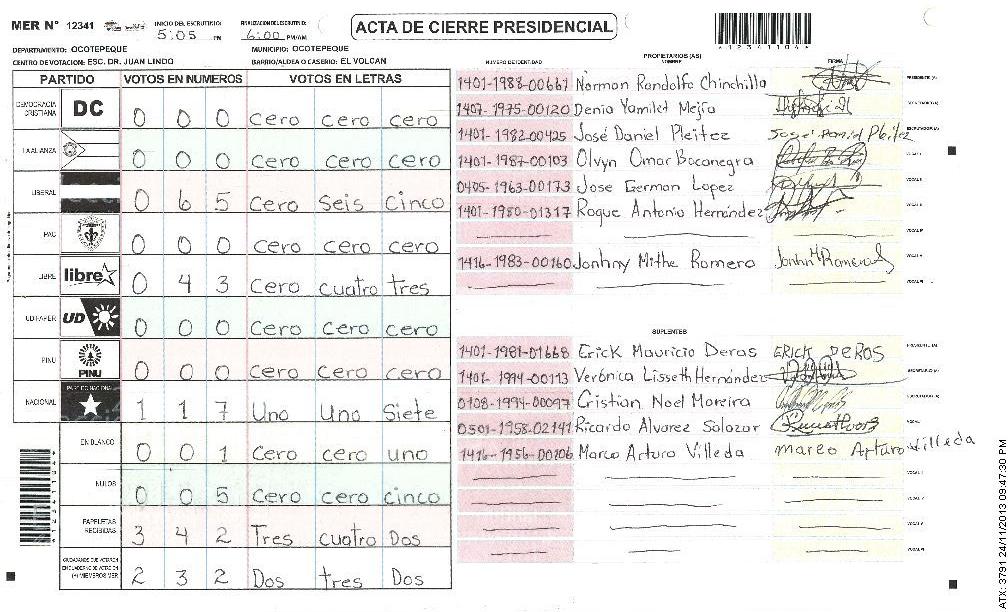 MER N° 12341 INICIO DEL ESCRUTINIO: 5:05 PM FINALIZACION ESCRUTINIO: 6:00 PM/AM
ACTA DE CIERRE PRESIDENCIAL
*12341104*
DEPARTAMENTO: OCOTEPEQUE MUNICIPIO: OCOTEPEQUE
CENTRO DE VOTACION: ESC. DR. JUAN LINDO BARRIO/ALDEA O CASERIO: EL VOLCAN
PARTIDO VOTOS EN NUMEROS VOTOS EN LETRAS
DEMOCRACIA CRISTIANA DC 0 0 0 Cero cero cero
LA ALIANZA 0 0 0 Cero cero cero
LIBERAL 0 6 5 Cero Seis Cinco
PAC 0 0 0 Cero cero cero
LIBRE libre 0 4 3 Cero cuatro tres
UD-FAPER UD 0 0 0 Cero cero cero
PINU PINU 0 0 0 Cero cero cero
NACIONAL PARTIDO NACIONAL 1 1 7 Uno Uno Siete
EN BLANCO 0 0 1 Cero cero uno
NULOS 0 0 5 Cero cero cinco
PAPELETAS RECIBIDAS 3 4 2 Tres cuatro Dos
CIUDADANOS QUE VOTARON EN CUADERNO DE VOTACION (+) MIEMBROS MER 2 3 2 Dos tres Dos
PROPIETARIOS (AS)
NUMERO DE IDENTIDAD NOMBRE FIRMA
1401-1988-00667 Norman Randolfo Chinchilla PRESIDENTE (A)
1407-1975-00120 Denia Yamilet Mejia SECRETARIO (A)
1401-1982-00425 José Daniel Pleitez Jose Daniel Pleitez ESCRUTADOR (A)
1401-1987-00103 Olvyn Omar Bocanegra VOCAL I
0405-1963-00173 Jose German Lopez VOCAL II
1401-1980-01317 Roque Antonio Hernández VOCAL III
VOCAL IV
1416-1983-00160 Jonhny Mithe Romero Jonhn M Romero VOCAL V
VOCAL VI
SUPLENTES
1401-1981-01668 Erick Mauricio Deras ERICK DEROS PRESIDENTE (A)
1401-1994-00113 Verónica Lisseth Hernández SECRETARIO (A)
0108-1994-00097 Cristian Noel Moreira ESCRUTADOR (A)
0501-1958-02141 Ricardo Alvarez Salazar VOCAL I
1416-1956-00106 Marco Arturo Villeda Marco Arturo Villeda
VOCAL V
VOCAL VI
ATX: 3791 24/11/2013 09:47:30 PM